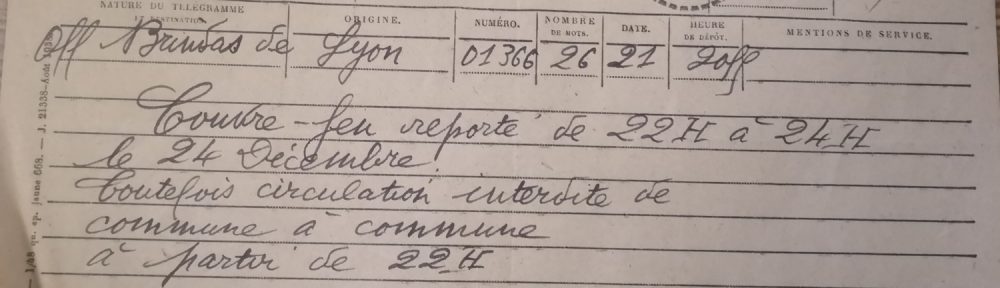 NATURE DU TÉLÉGRAMME
ET DESTINATION.
ORIGINE.
NUMÉRO.
NOMBRE
DE MOTS.
DATE.
HEURE
DE DÉPÔT.
MENTIONS DE SERVICE.
Off Brindas de Lyon 01366 26 21
Couvre-feu reporté de 22H à 24H
le 24 Décembre.
toutefois circulation interdite de
commune à commune
à partir de 22H
J. 21338-Août 1938